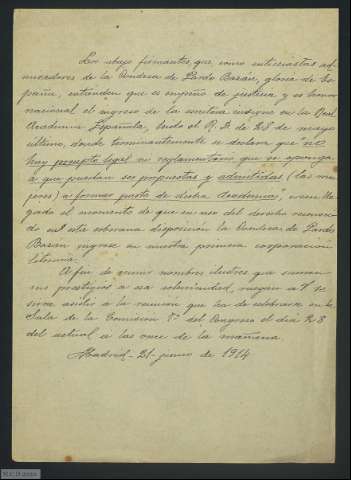 Los abajo firmantes, que, como entusiastas ad-
miradores de la Condesa de Pardo Bazán, gloria de Es-
paña, entienden que es empeño de justicia y es honor
nacional el ingreso de la escritora insigne en la Real
Academia Española, leido el R. D. de 28 de mayo
último, donde terminantemente se declara que "no
hay precepto legal ni reglamentario que se oponga
a que puedan ser propuestas y admitidas (las mu-
jeres) a formar parte de dicha Academia", creen lle-
gado el momento de que en uso del derecho reconoci-
do en esta soberana disposición la Condesa de Pardo
Bazán ingrese en nuestra primera corporación
literaria.
A fin de reunir nombres ilustres que sumen
sus prestigios a esa solemnidad, ruegan a V. se
sirva asistir a la reunión que ha de celebrarse en la
Sala de la Comisión 1ª del Congreso el día 28
del actual a las once de la mañana.
Madrid - 21 - junio de 1914